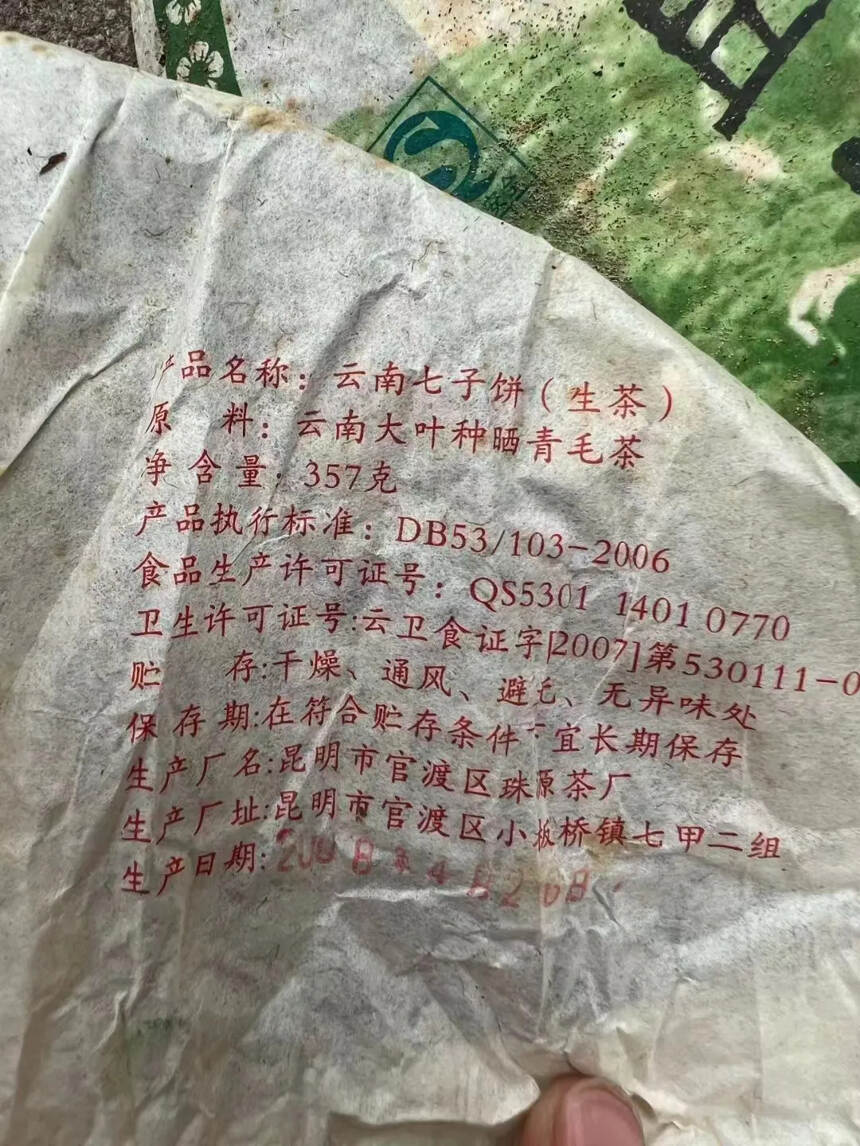 产品名称：云南七子饼（生茶）
原 料：云南大叶种晒青毛茶
净含量：357克
产品执行标准：DB53/103-2006
食品生产许可证号：QS5301 1401 0770
卫生许可证号:云卫食证字[2007]第530111-0
贮 存:干燥、通风、避光、无异味处
保存期:在符合贮存条件下宜长期保存
生产厂名:昆明市官渡区珠源茶厂
生产厂址:昆明市官渡区小板桥镇七甲二组
生产日期:2008年4月26日